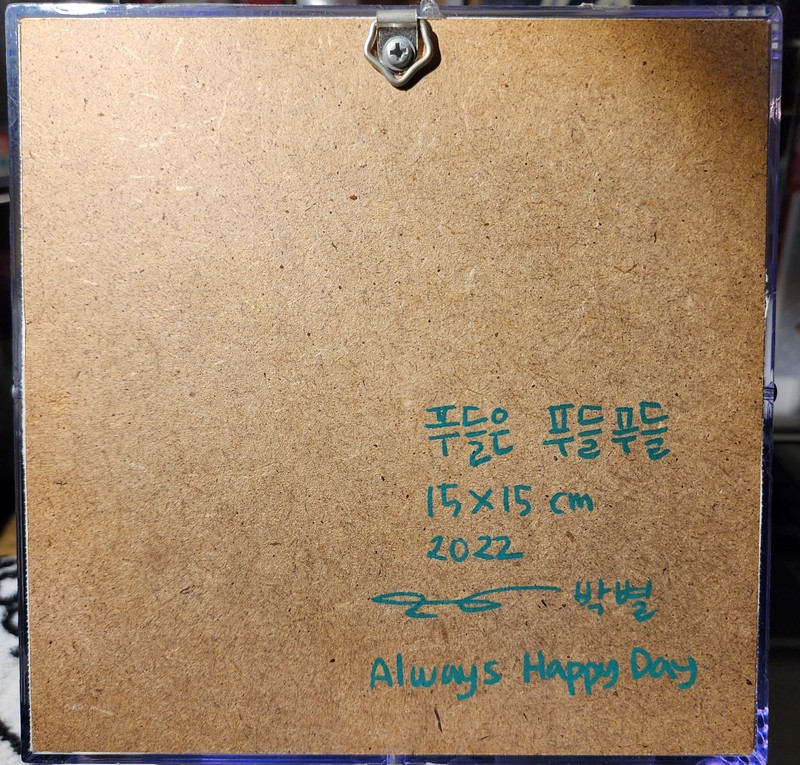 푸들은 푸들푸들
15×15 cm
2022
박별
Always Happy Day